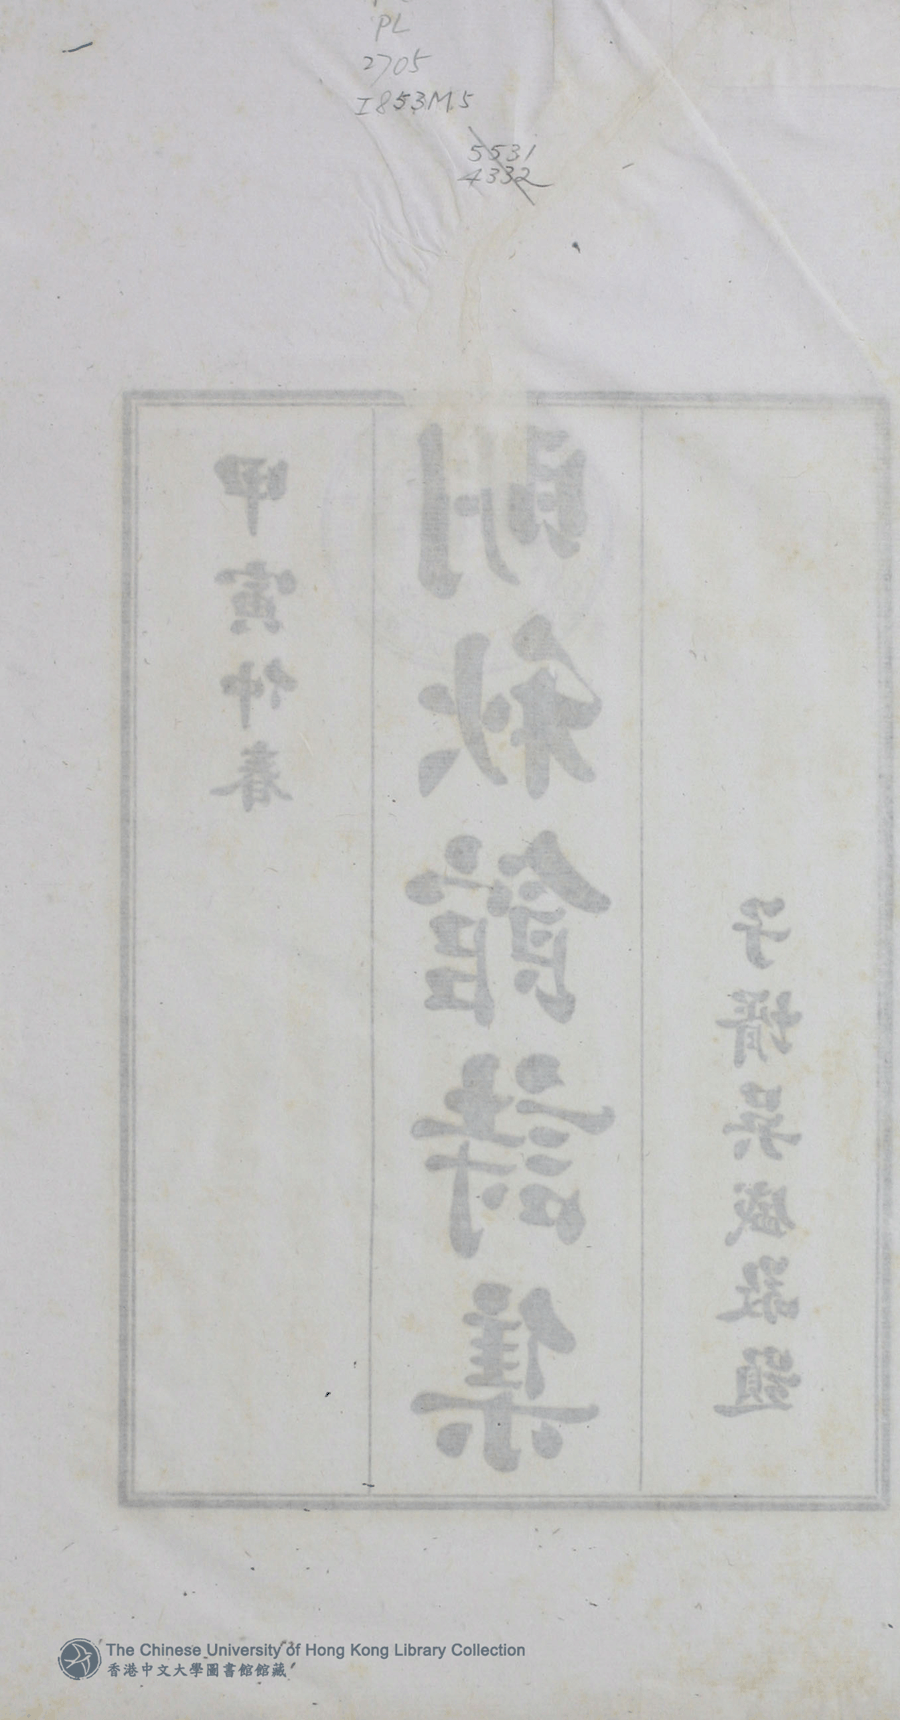 PL
2705
I853M5
5531
4332
甲寅仲春
明秋館詩集
子壻吳盛題
The Chinese University of Hong Kong Library Collection
香港中文大學圖書館館藏